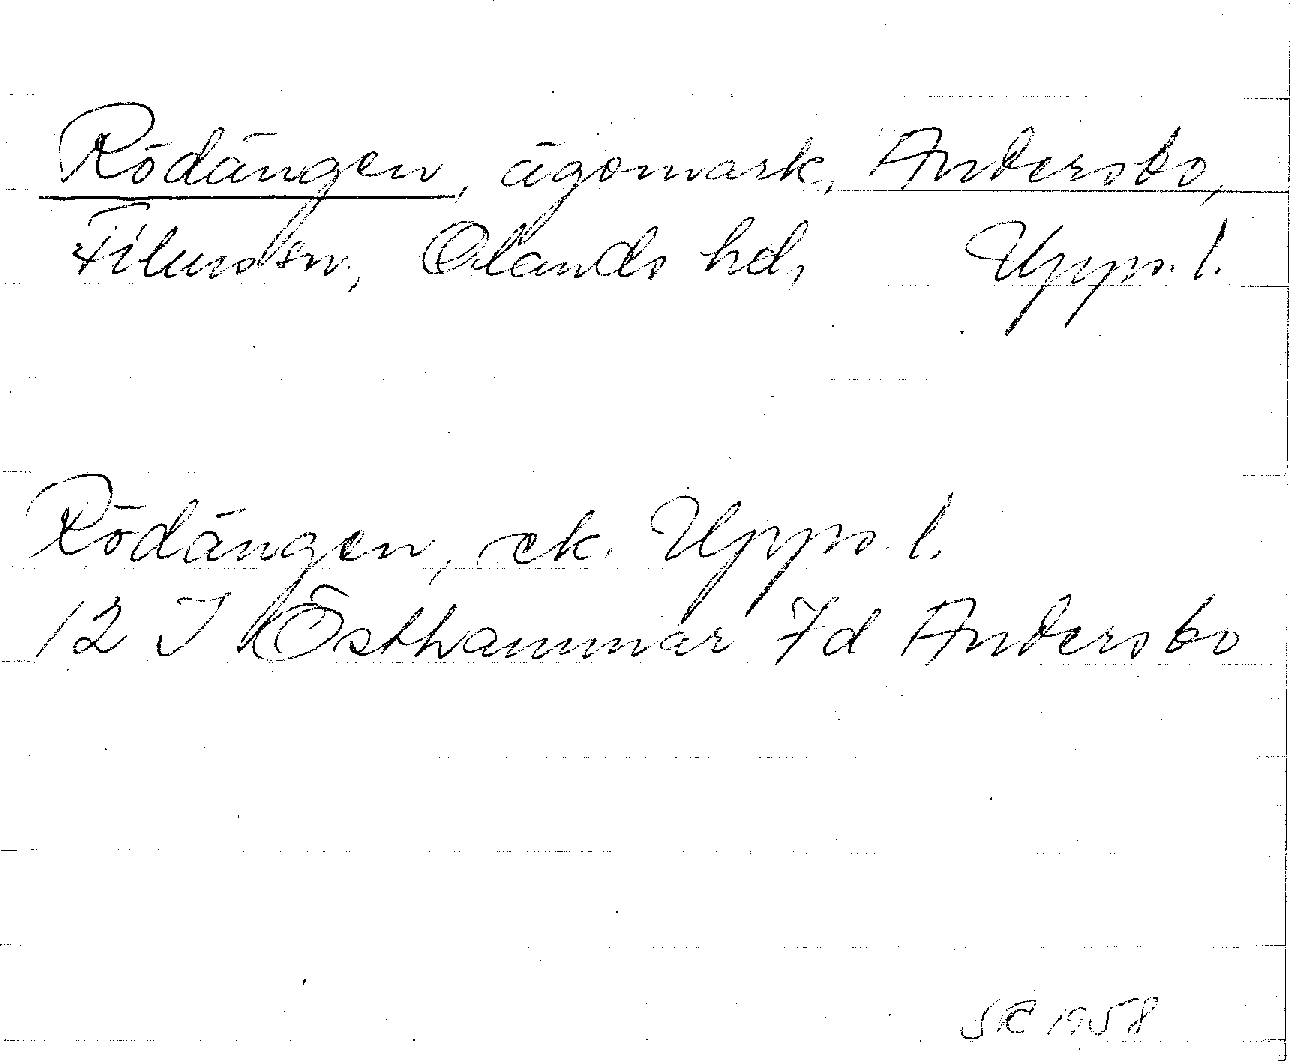 Rödängen, ägomark, Andersbo,
Films sn, Olands hd, Upps. l.
Rödängen, ek. Upps. l.
12 I Östhammar 7d Andersbo
SR 1958